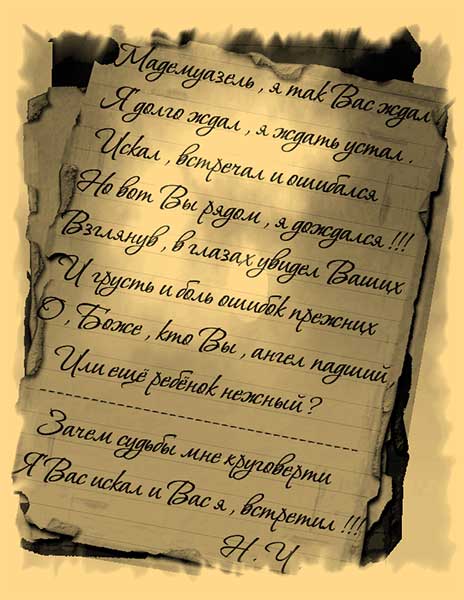 Мадемуазель , я так Вас ждал
Я долго ждал , я ждать устал .
Искал , встречал и ошибался
Но вот Вы рядом , я дождался !!!
Взглянув , в глазах увидел Ваших
И грусть и боль ошибок прежних
О , Боже , кто Вы , ангел падший,
Или ещё ребёнок нежный ?
--------------------------------
Зачем судьбы мне круговерти
Я Вас искал и Вас я , встретил !!!
Н. Ч